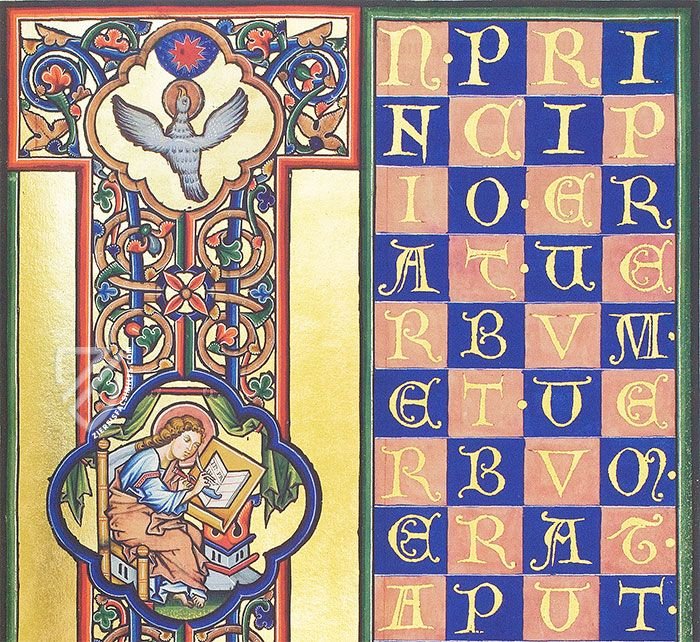 N·PRI
NCIP
IO·ER
AT·UE
RBVM·
ET·UE
RBVM·
ERAT·
APUT·